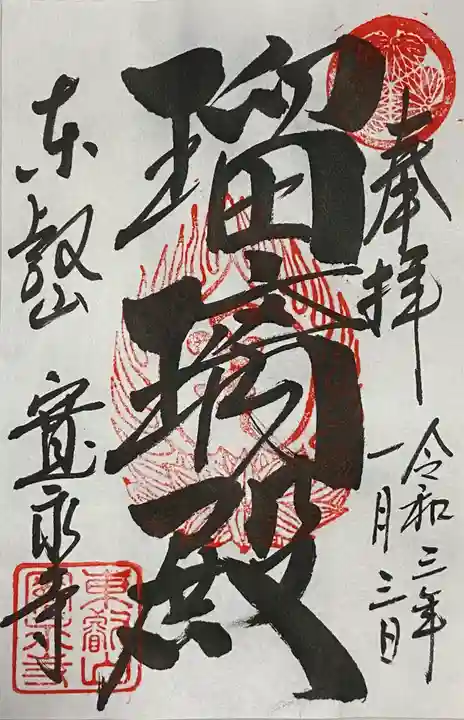 奉拝
令和三年
一月三日
瑠璃殿
東叡山
寛永寺
東叡山
寛永寺